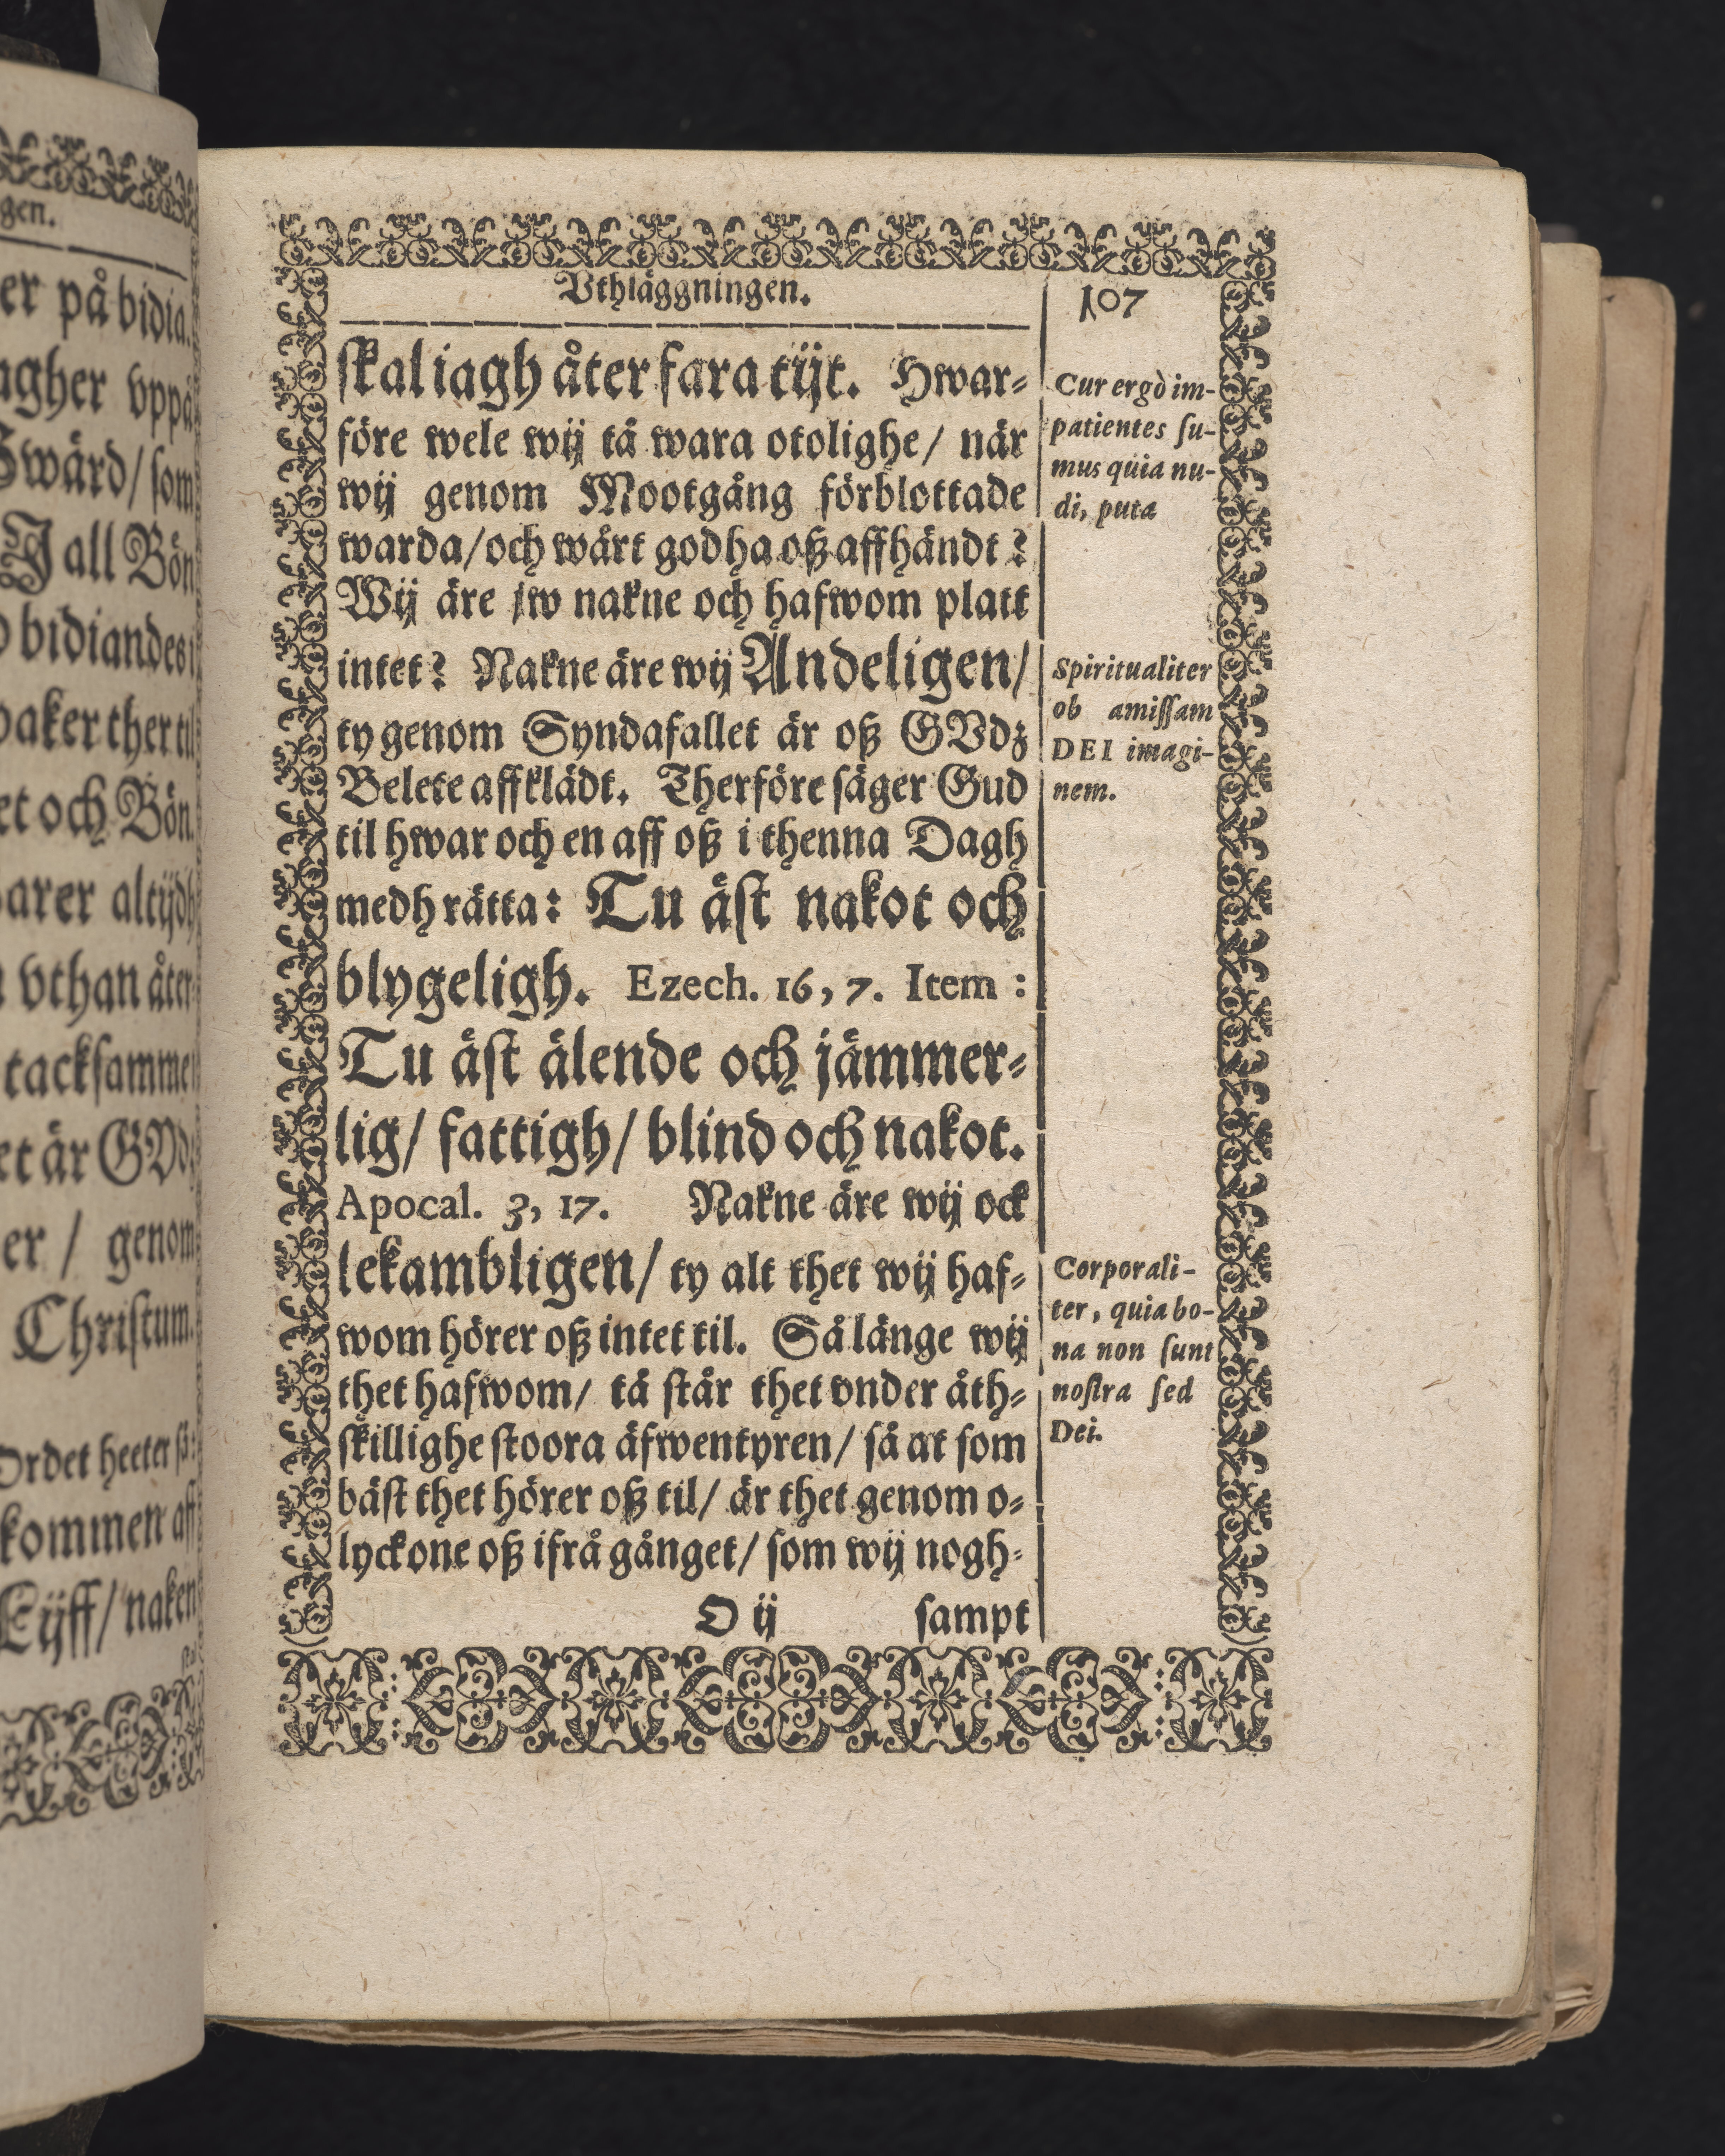 gen.
er på bidia.
agher vppå
Swärd/ som
J all Bön
bidiandes
oaker ther til
et och Bön.
arer altijdh
vthan åter
tacksamme
et är GVdz
er / genom
Christum.
Ordet heeter så:
kommen aff
Lijff/ naken
Vthläggningen.
107
skal iagh åter fara tijt. Hwar-
före wele wij tå wara otolighe/ när
wij genom Mootgång förblottade
warda/ och wårt godha oß affhändt?
Wij äre jw nakne och hafwom platt
intet? Nakne äre wij Andeligen/
ty genom Syndafallet är oß GVdz
Belete affklädt. Therföre säger Gud
til hwar och en aff oß i thenna Dagh
medh rätta: Tu äst nakot och
blygeligh. Ezech. 16, 7. Item :
Tu äst älende och jämmer-
lig/ fattigh/ blind och nakot.
Apocal. 3, 17. Nakne äre wij ock
lekambligen/ ty alt thet wij haf-
wom hörer oß intet til. Så länge wij
thet hafwom/ tå står thet vnder åth-
skillighe stoora äfwentyren/ så at som
bäst thet hörer oß til/ är thet genom o-
lyckone oß ifrå gånget/ som wij nogh-
O ij sampt
Cur ergò im-
patientes su-
mus quia nu-
di, puta
Spiritualiter
ob amissam
DEI imagi-
nem.
Corporali-
ter, quia bo-
na non sunt
nostra sed
Dei.